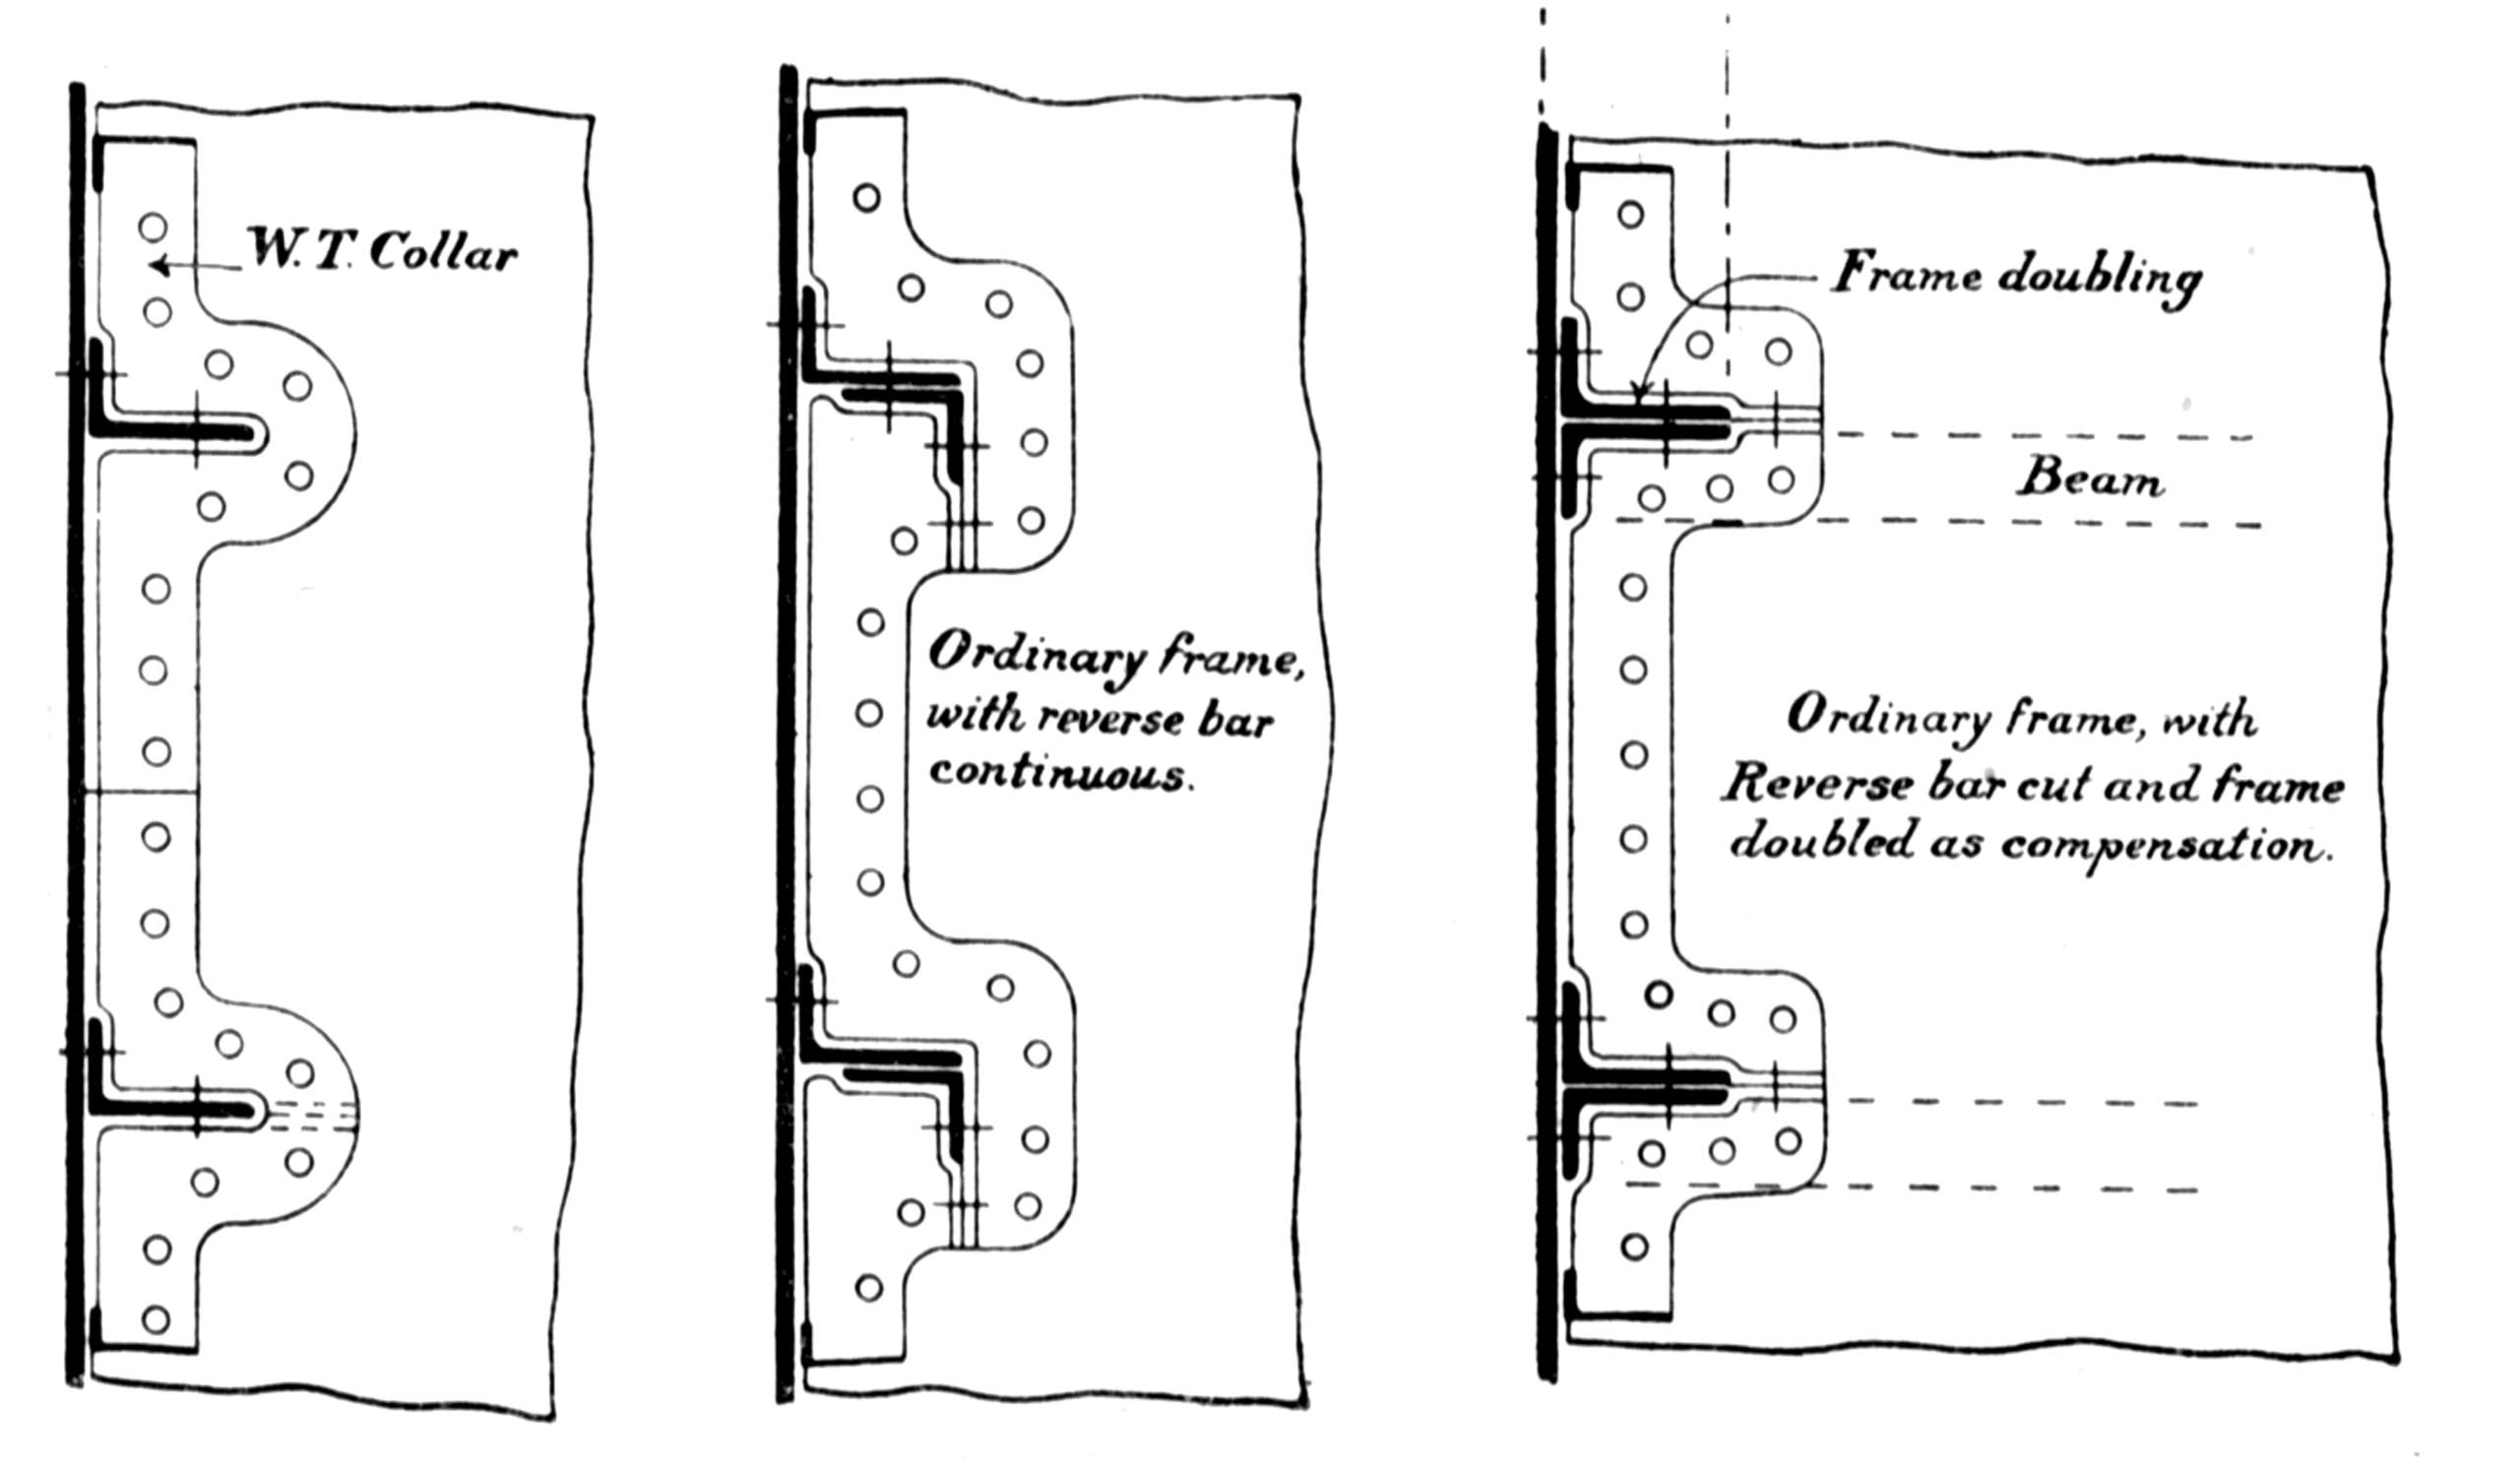 W. T. Collar
Ordinary frame,
with reverse bar
continuous.
Frame doubling
Beam
Ordinary frame, with
Reverse bar cut and frame
doubled as compensation.